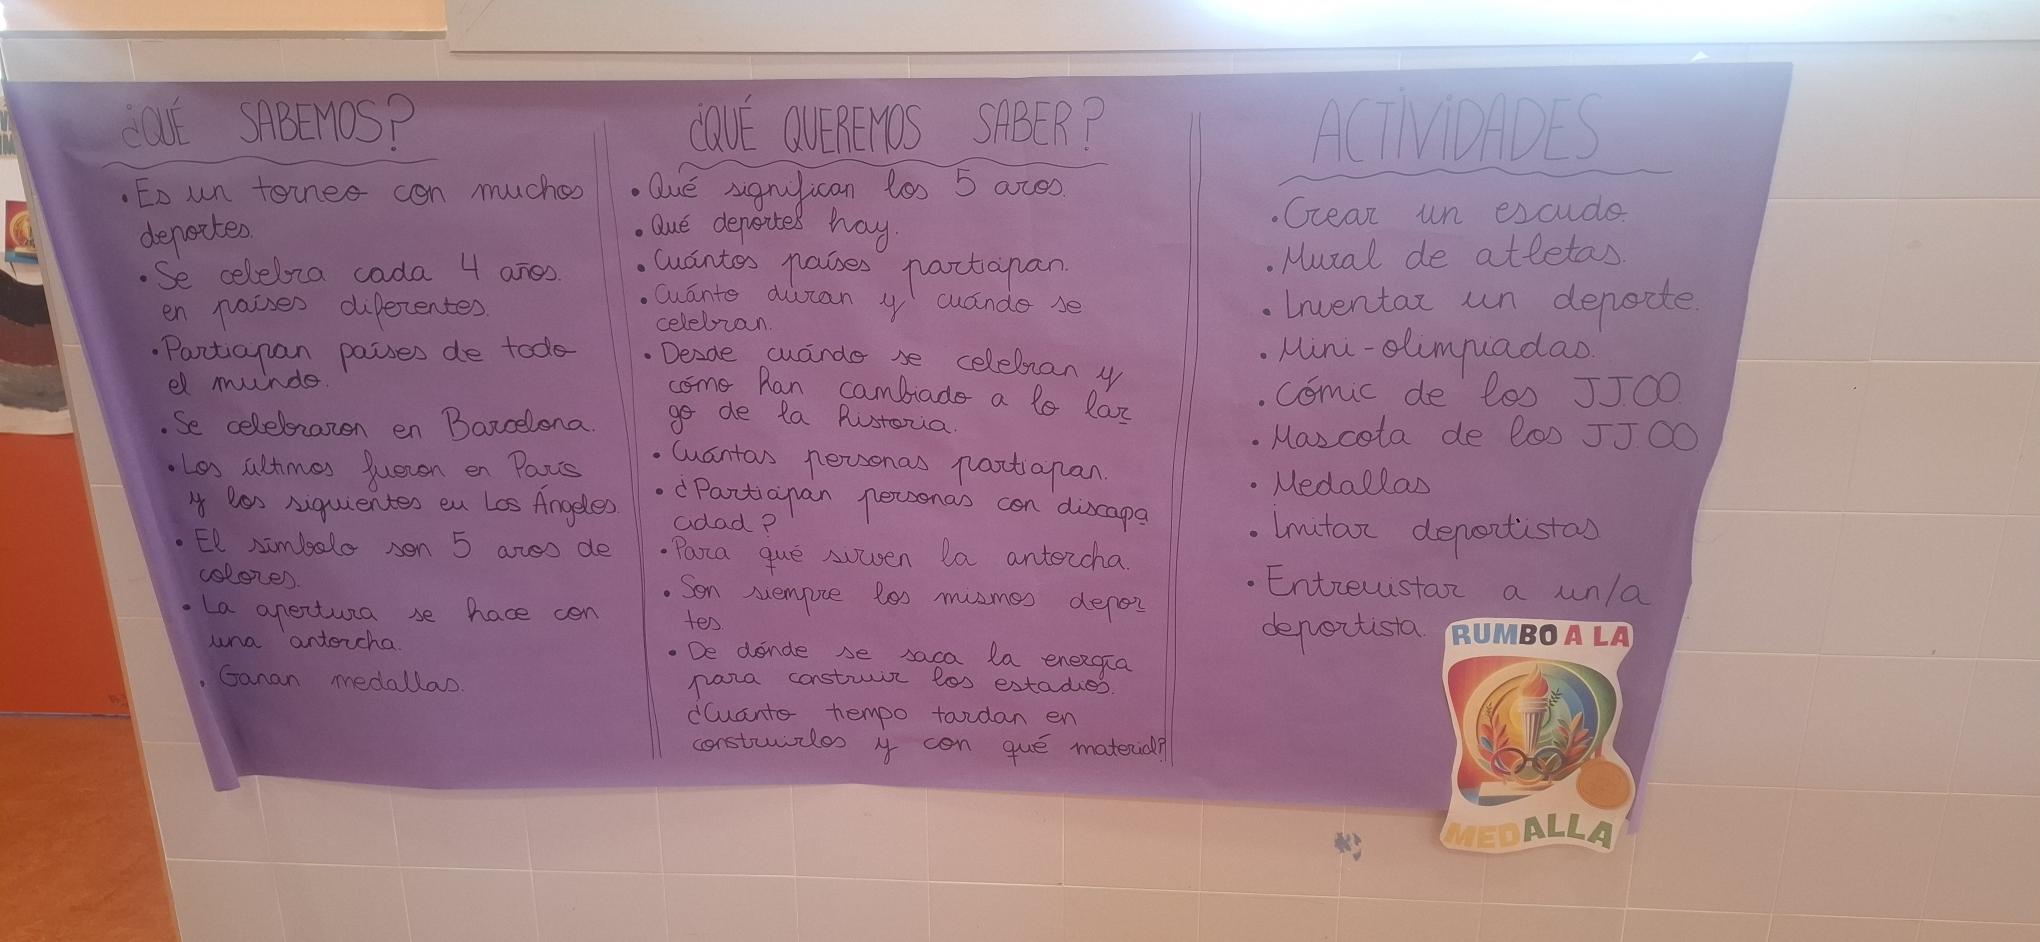 ¿QUÉ SABEMOS?
• Es un torneo con muchos
deportes.
• Se celebra cada 4 años.
en países diferentes.
• Participan países de todo
el mundo.
• Se celebraron en Barcelona.
• Los últimos fueron en París
y los siguientes en Los Ángeles.
• El símbolo son 5 aros de
colores.
• La apertura se hace con
una antorcha.
• Ganan medallas.
¿QUÉ QUEREMOS SABER?
• Qué significan los 5 aros.
• Qué deportes hay.
• Cuántos países participan.
• Cuánto duran y cuándo se
celebran.
• Desde cuándo se celebran y
cómo han cambiado a lo lar
go de la historia.
• Cuántas personas participan.
• ¿Participan personas con discapa
cidad?
• Para qué sirven la antorcha.
• Son siempre los mismos depor
tes.
• De dónde se saca la energía
para construir los estadios.
¿Cuánto tiempo tardan en
construirlos y con qué material?
ACTIVIDADES
• Crear un escudo.
• Mural de atletas.
• Inventar un deporte.
• Mini-olimpiadas.
• Cómic de los JJ.OO.
• Mascota de los JJ.OO
• Medallas
• Imitar deportistas
• Entrevistar a un/a
deportista.
RUMBO A LA
MEDALLA